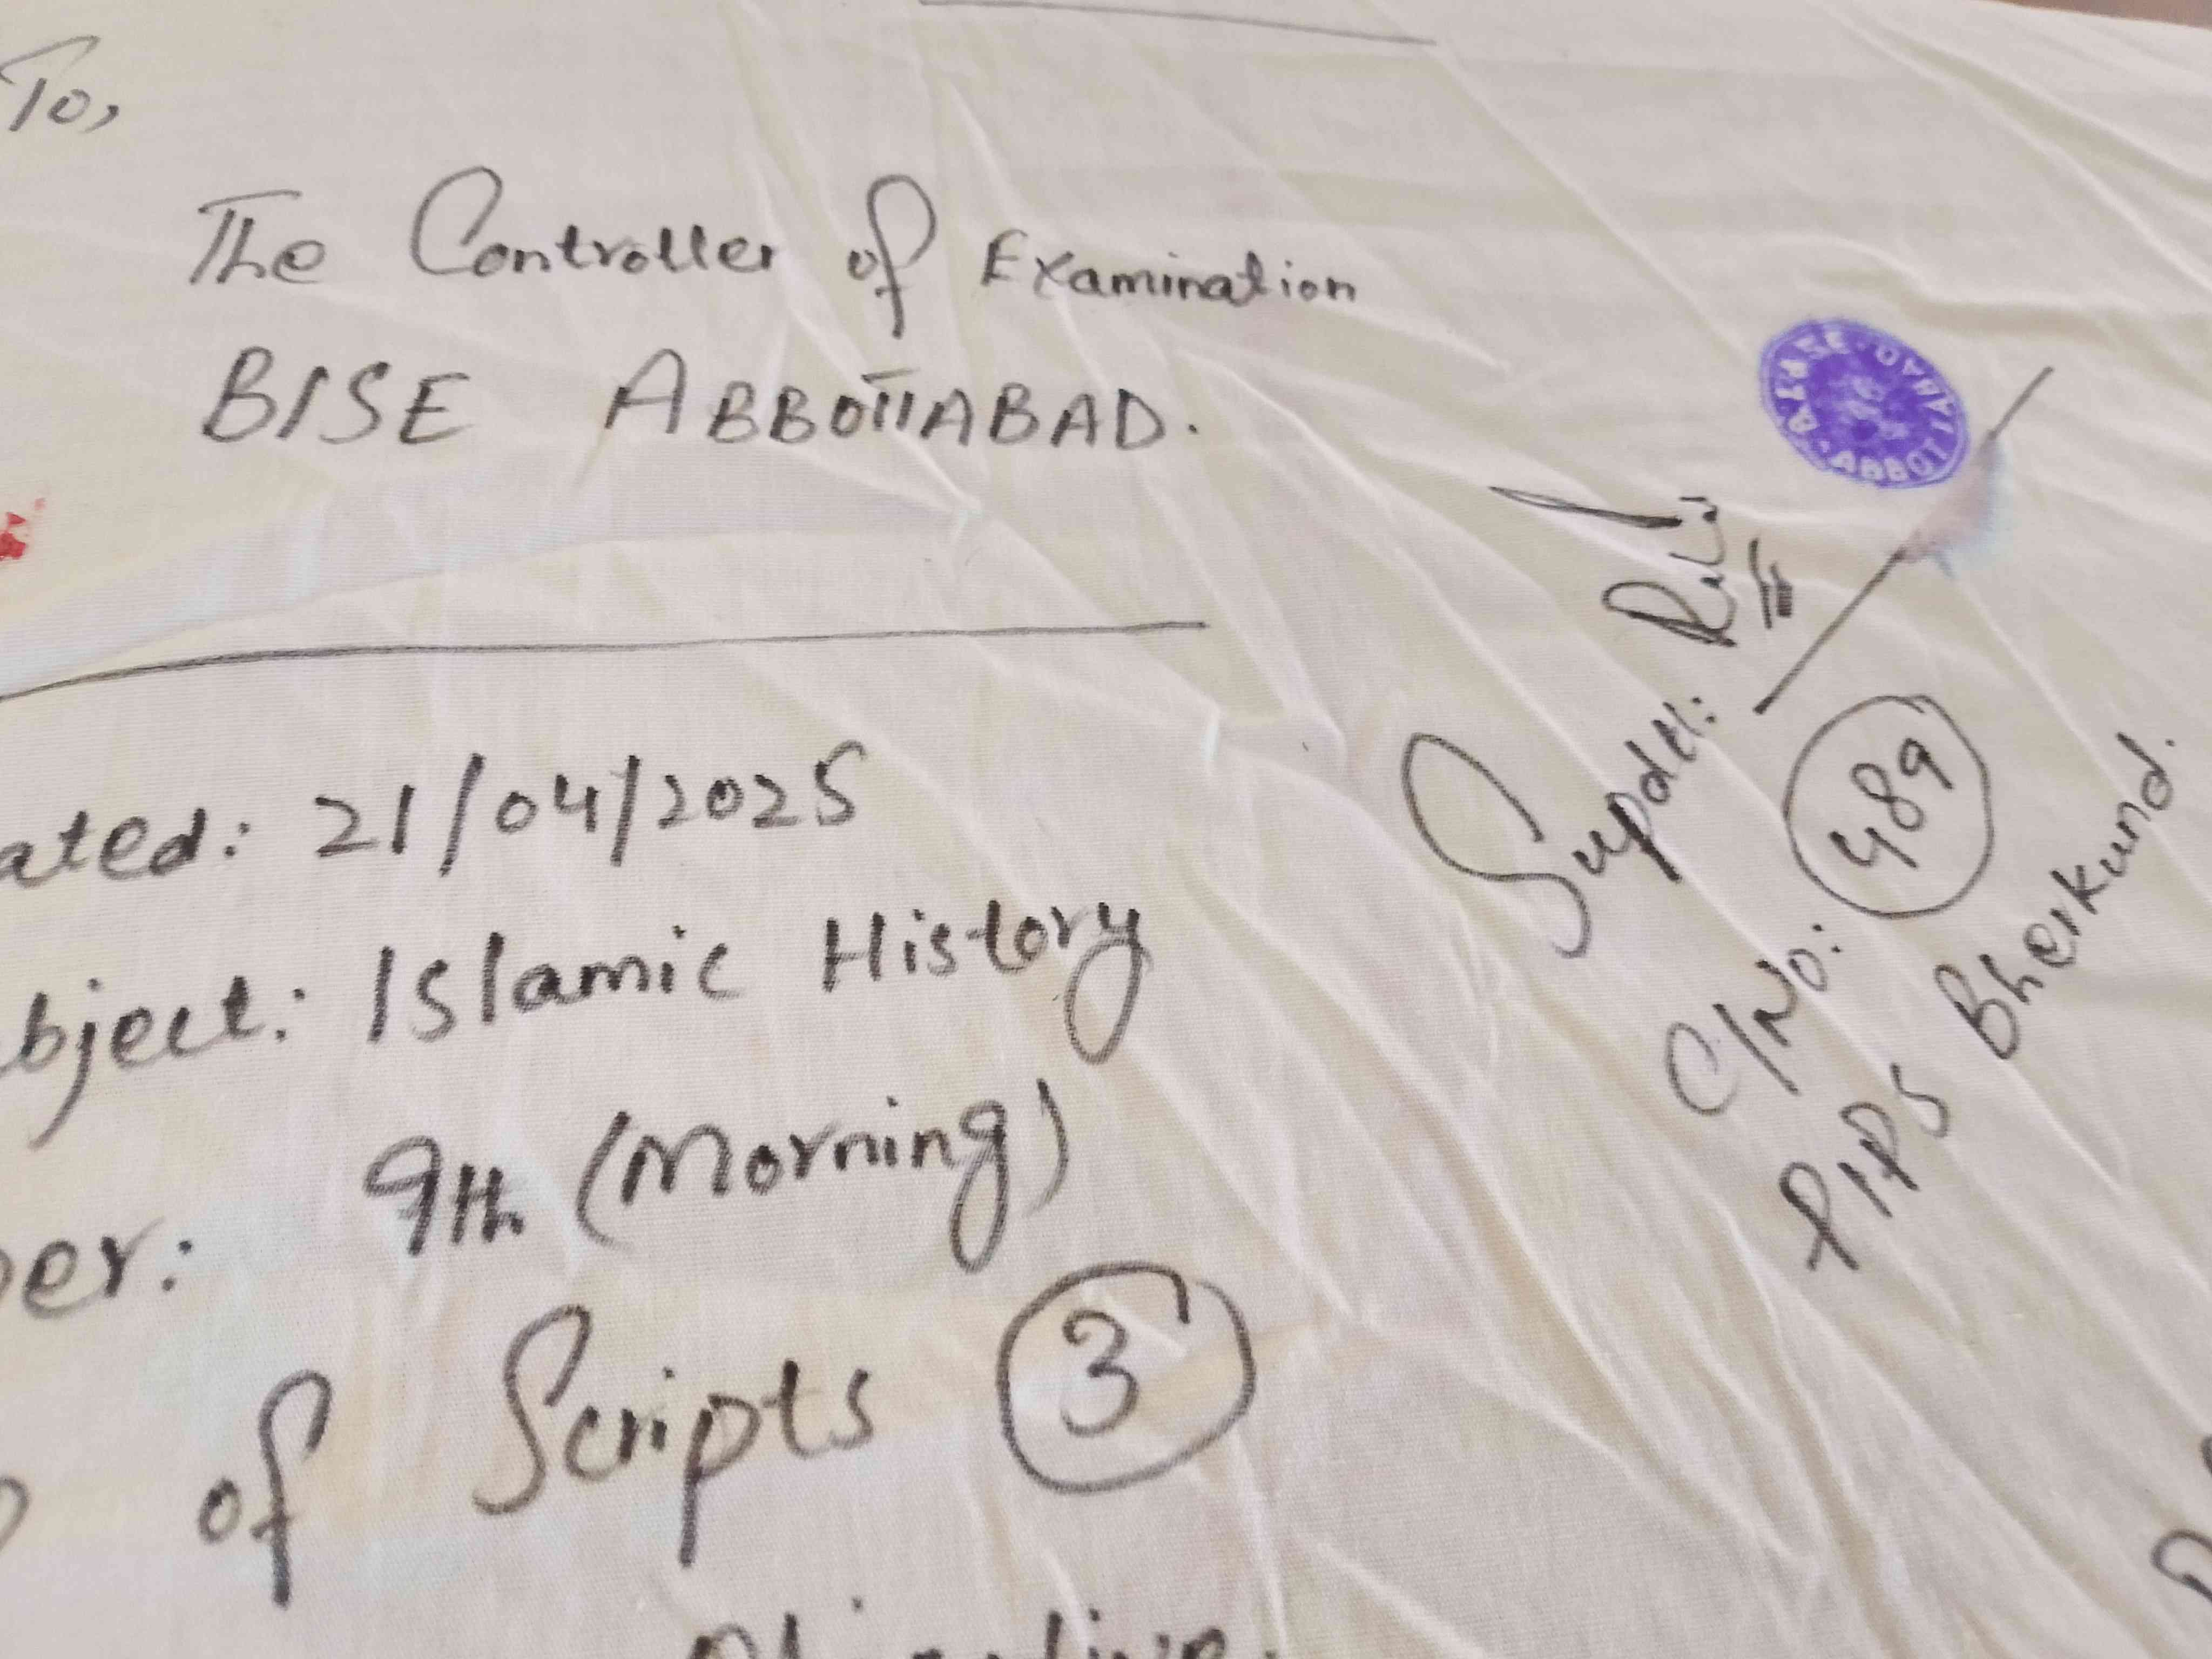 To,
The Controller of Examination
BISE ABBOTTABAD.
ated: 21/04/2025
bject: Islamic History
9th (Morning)
er:
of Scripts 3
Supdtt:
C/No: 489
PIPS Bherkund.